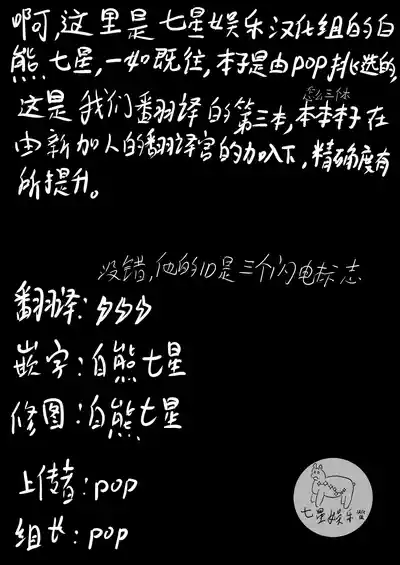 啊,这里是七星娱乐汉化组的白
熊七星,一如既往,本子是由pop挑选的,
这是我们翻译的第三本,本本本子在
怎么三体
由新加入的翻译官的加入下,精确度有
所提升。
没错,他的ID是三个闪电标志
翻译:ϟϟϟ
嵌字:白熊七星
修图:白熊七星
上传者:pop
组长:pop
七星娱乐